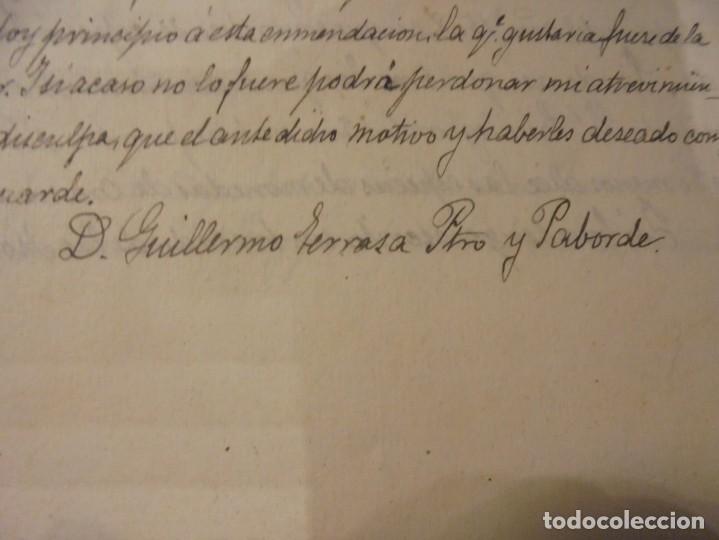 doy principio á esta enmendacion, la qe. gustaria fuese de la
r. I si acaso no lo fuere podrá perdonar mi atrevimien-
disculpa, que el antedicho motivo y haberles deseado con
uarde.
D. Guillermo Terrasa Ptro y Paborde.
todocoleccion
todocoleccion.net